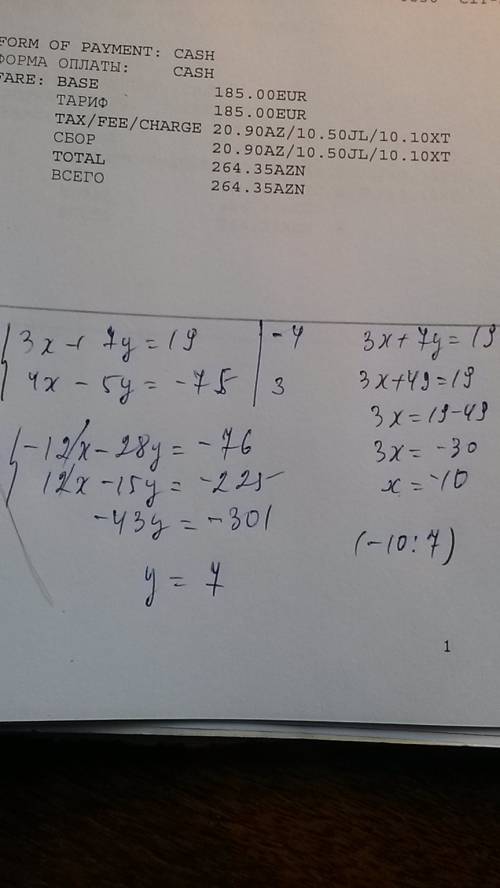 FORM OF PAYMENT: CASH
ФОРМА ОПЛАТЫ: CASH
FARE: BASE 185.00EUR
ТАРИФ 185.00EUR
TAX/FEE/CHARGE 20.90AZ/10.50JL/10.10XT
СБОР 20.90AZ/10.50JL/10.10XT
TOTAL 264.35AZN
ВСЕГО 264.35AZN
3x + 7y = 19 | -4
4x - 5y = -75 | 3
-12x - 28y = -76
12x - 15y = -225
-43y = -301
y = 7
3x + 7y = 19
3x + 49 = 19
3x = 19 - 49
3x = -30
x = -10
(-10; 7)
1